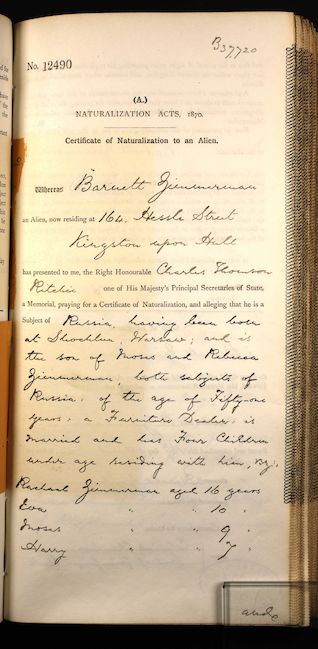 B37,720
No. 12490
(A.)
NATURALIZATION ACTS, 1870.
Certificate of Naturalization to an Alien.
Whereas Barnett Zimmerman
an Alien, now residing at 164. Hessle Street
Kingston upon Hull
has presented to me, the Right Honourable Charles Thomson
Ritchie one of His Majesty's Principal Secretaries of State,
a Memorial, praying for a Certificate of Naturalization, and alleging that he is a
Subject of Russia, having been born
at Warsaw; and is
the son of Moses and Rebecca
Zimmerman, both subjects of
Russia: of the age of Fifty-one
years: a Furniture Dealer: is
married and has Four Children
under age residing with him, viz:
Rachael Zimmerman aged 16 years
Eva " " 10 "
Moses " " 9 "
Harry " " 7 "
and